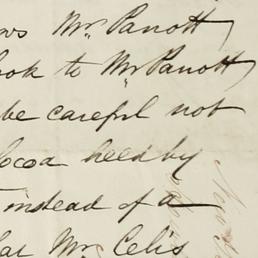 Mr Parrott
ook to Mr Parrott
be careful not
Cocoa heed by
instead of a
Mr Celis